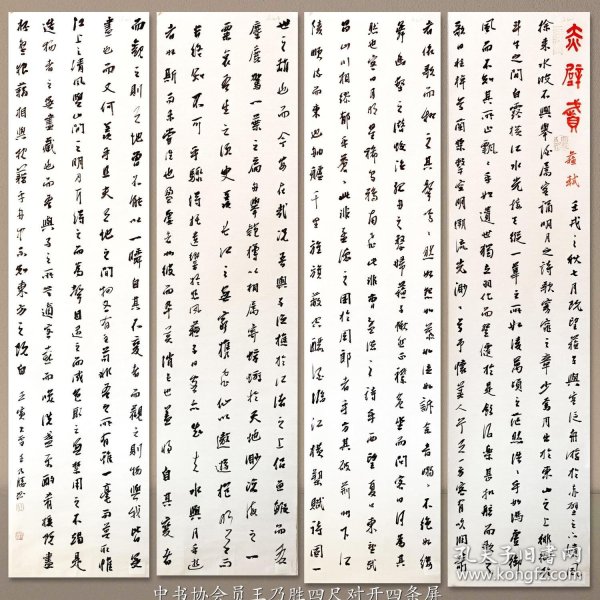 赤壁賦
蘇軾
壬戌之秋七月既望蘇子與客泛舟遊於赤壁之下清風
徐来水波不興舉酒屬客誦明月之詩歌窈窕之章少焉月出於東山之上徘徊於
斗牛之間白露橫江水光接天縱一葦之所如凌萬頃之茫然浩浩乎如馮虛御
風而不知其所止飄飄乎如遺世獨立羽化而登僊於是飲酒樂甚扣舷而歌之
歌曰桂棹兮蘭槳擊空明兮溯流光渺渺兮予懷望美人兮天一方客有吹洞簫
者倚歌而和之其聲嗚嗚然如怨如慕如泣如訴餘音嫋嫋不絕如縷
舞幽壑之潛蛟泣孤舟之嫠婦蘇子愀然正襟危坐而問客曰何為其
然也客曰月明星稀烏鵲南飛此非曹孟德之詩乎西望夏口東望武
昌山川相繆鬱乎蒼蒼此非孟德之困於周郎者乎方其破荊州下江
陵順流而東也舳艫千里旌旗蔽空釃酒臨江橫槊賦詩固一
世之雄也而今安在哉況吾與子漁樵於江渚之上侶魚鰕而友
麋鹿駕一葉之扁舟舉匏樽以相屬寄蜉蝣於天地渺滄海之一
粟哀吾生之須臾羨長江之無窮挾飛仙以遨遊抱明月而
長終知不可乎驟得託遺響於悲風蘇子曰客亦知夫水與月乎逝
者如斯而未嘗往也盈虛者如彼而卒莫消長也蓋將自其變者
而觀之則天地曾不能以一瞬自其不變者而觀之則物與我皆無
盡也而又何羨乎且夫天地之間物各有主苟非吾之所有雖一毫而莫取惟
江上之清風與山間之明月耳得之而為聲目遇之而成色取之無禁用之不竭是
造物者之無盡藏也而吾與子之所共適客喜而笑洗盞更酌肴核既盡
杯盤狼藉相與枕藉乎舟中不知東方之既白
中书协会员王乃胜四尺对开四条屏
孔夫子旧书网
www.kongfz.com